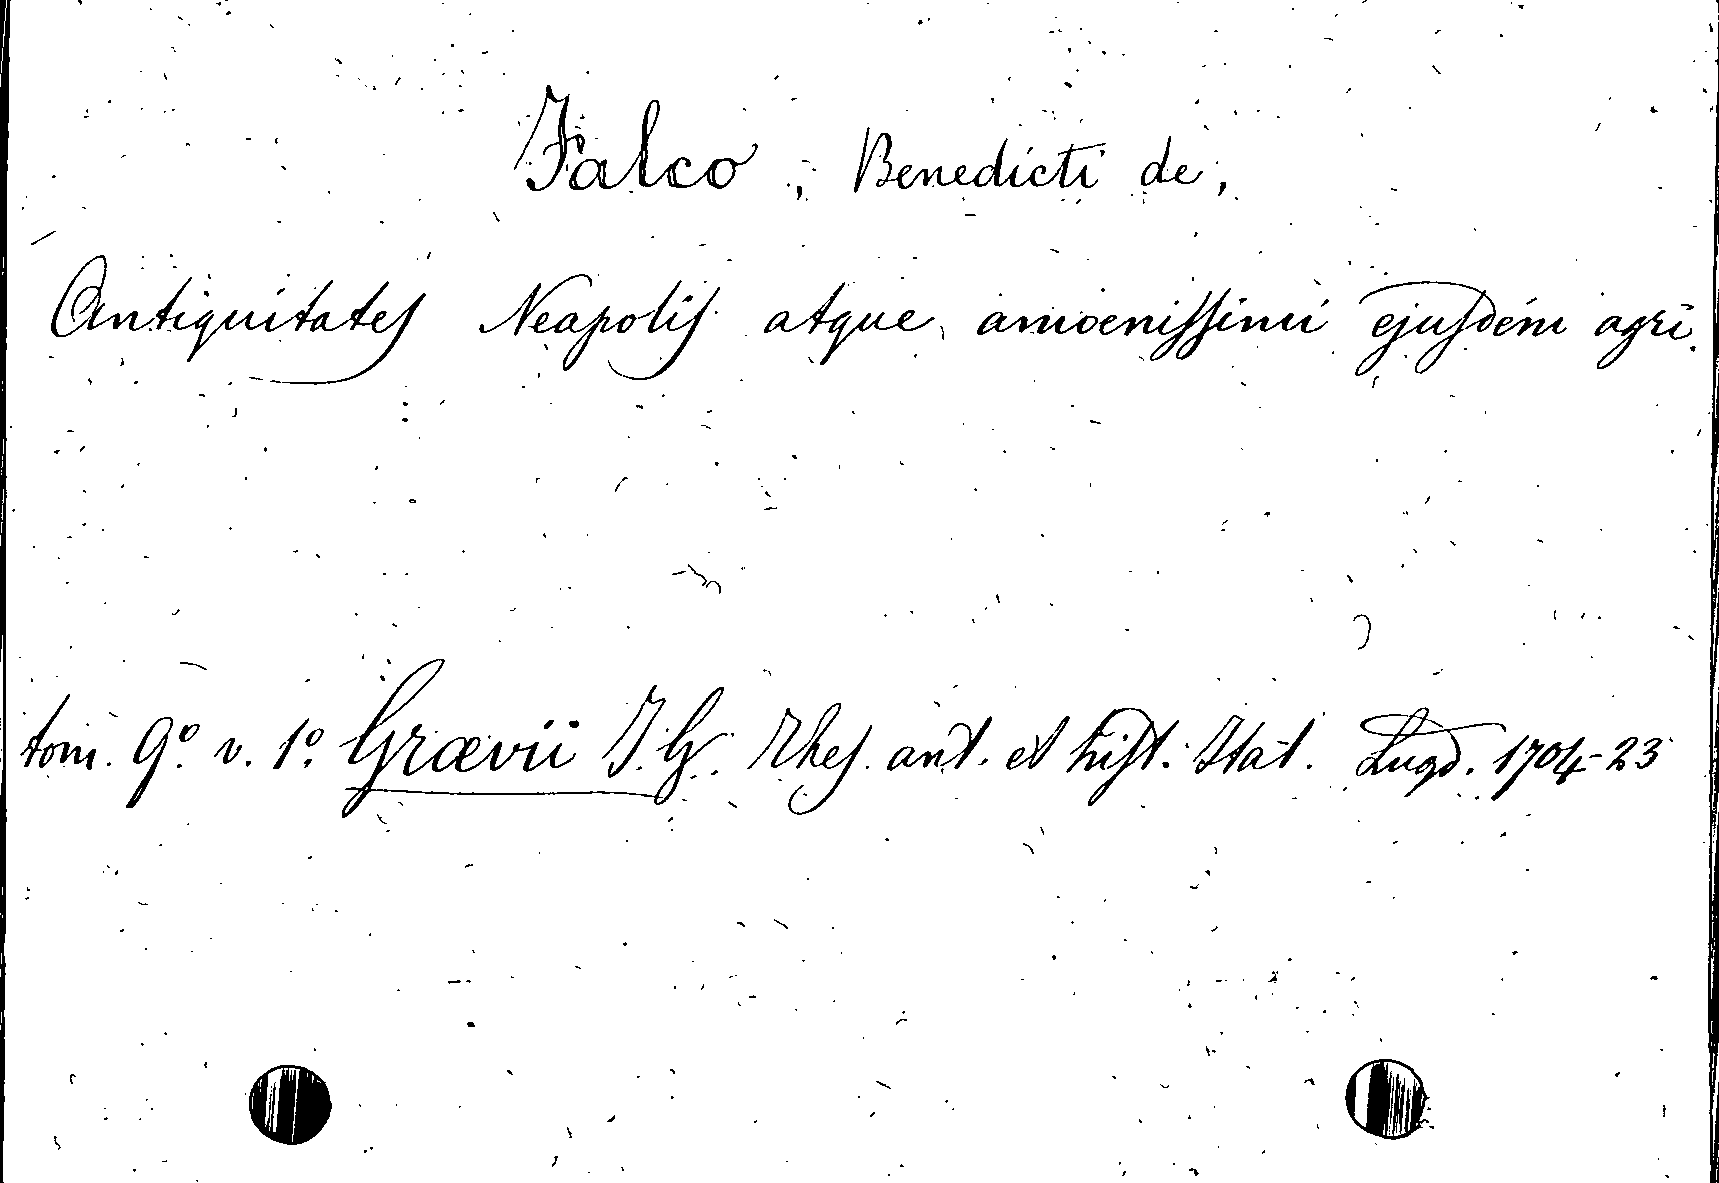 Falco, Benedicti de,
Antiquitates Neapolis atque amoenissimi ejusdem agri.
tom. 9º v. 1º Grævii J. G. Thes. ant. et hist. Ital. Lugd. 1704-23